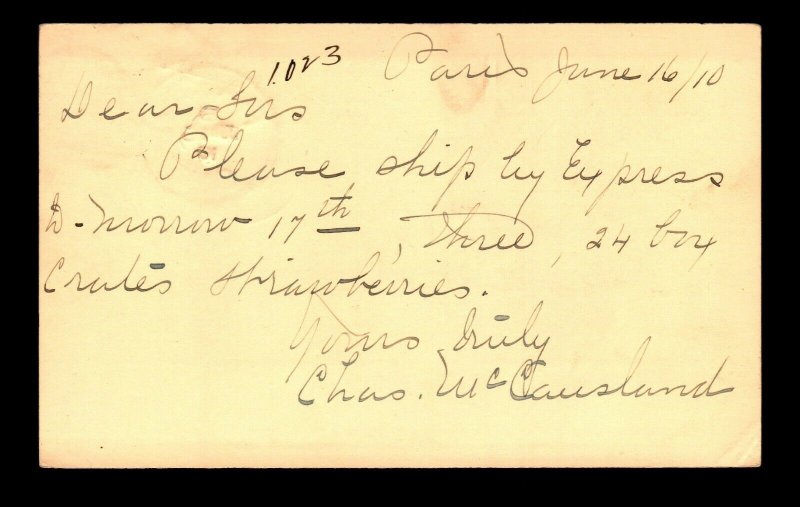 1023
Paris June 16/10
Dear Sirs
Please ship by Express
to-morrow 17th, three, 24 box
Crates strawberries.
Yours truly
Chas. McCausland